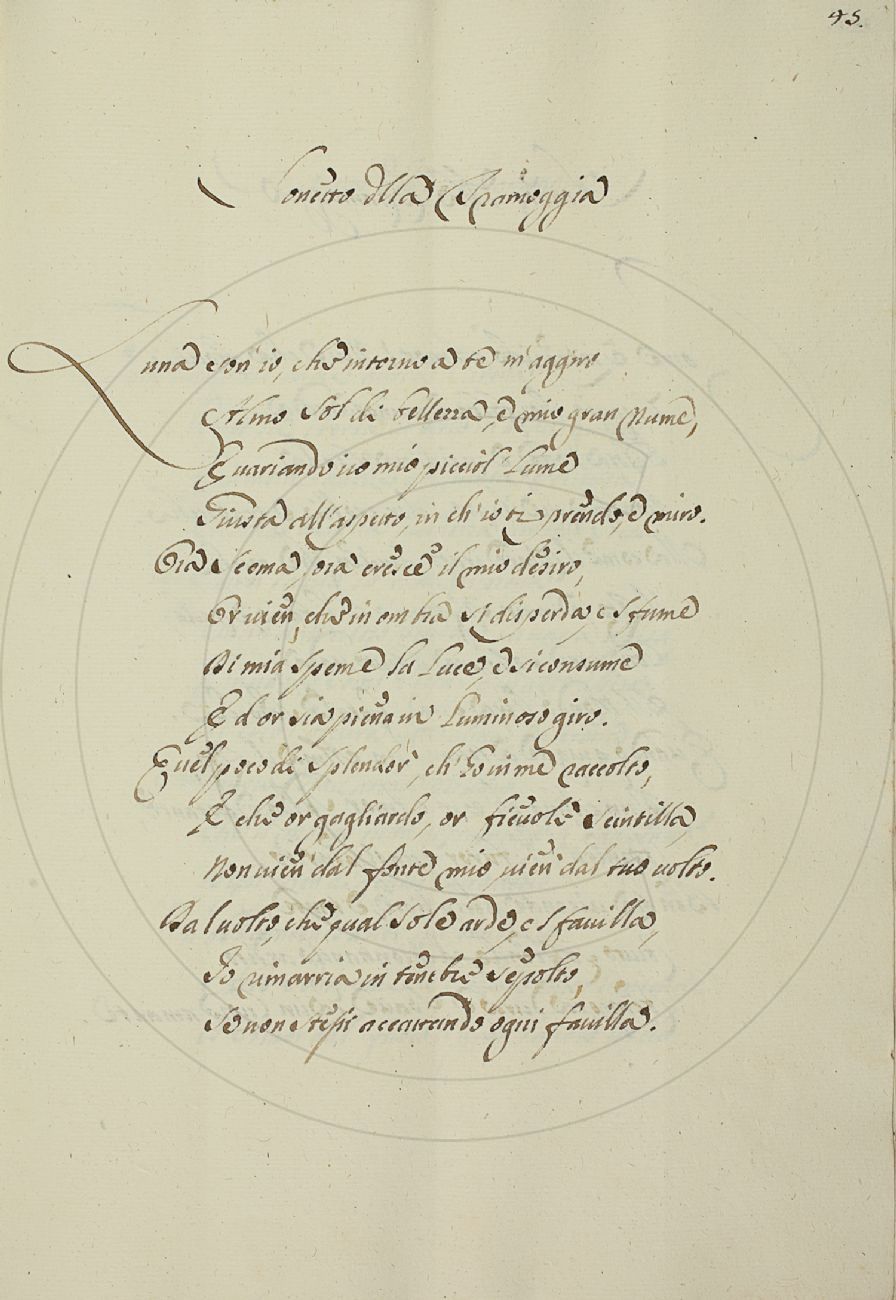 45.
Sonetto dlla Tramoggia
Luna son' io, che intorno a te m'aggiro
Almo Sol di bellezza, e mio gran Nume,
E variando vo mio picciol Lume
Giusta all'aspetto, in ch' io ti prendo, e miro.
Ora Scema, ora cresce il mio desiro,
Or vien, che in ombra si disperda, e sfume
Di mia speme la Luce, e si consume
E d or sia piena in Luminoso giro.
Quel poco di Splendor, ch' ho in me raccolto,
E che or gagliardo, or fievole Scintilla,
Non vien' dal fonte mio, vien' dal tuo volto.
Dal volto, che qual Sole arde, e sfavilla,
Io rimarria in tenebre Sepolto,
Se non Stessi accattando ogni favilla.